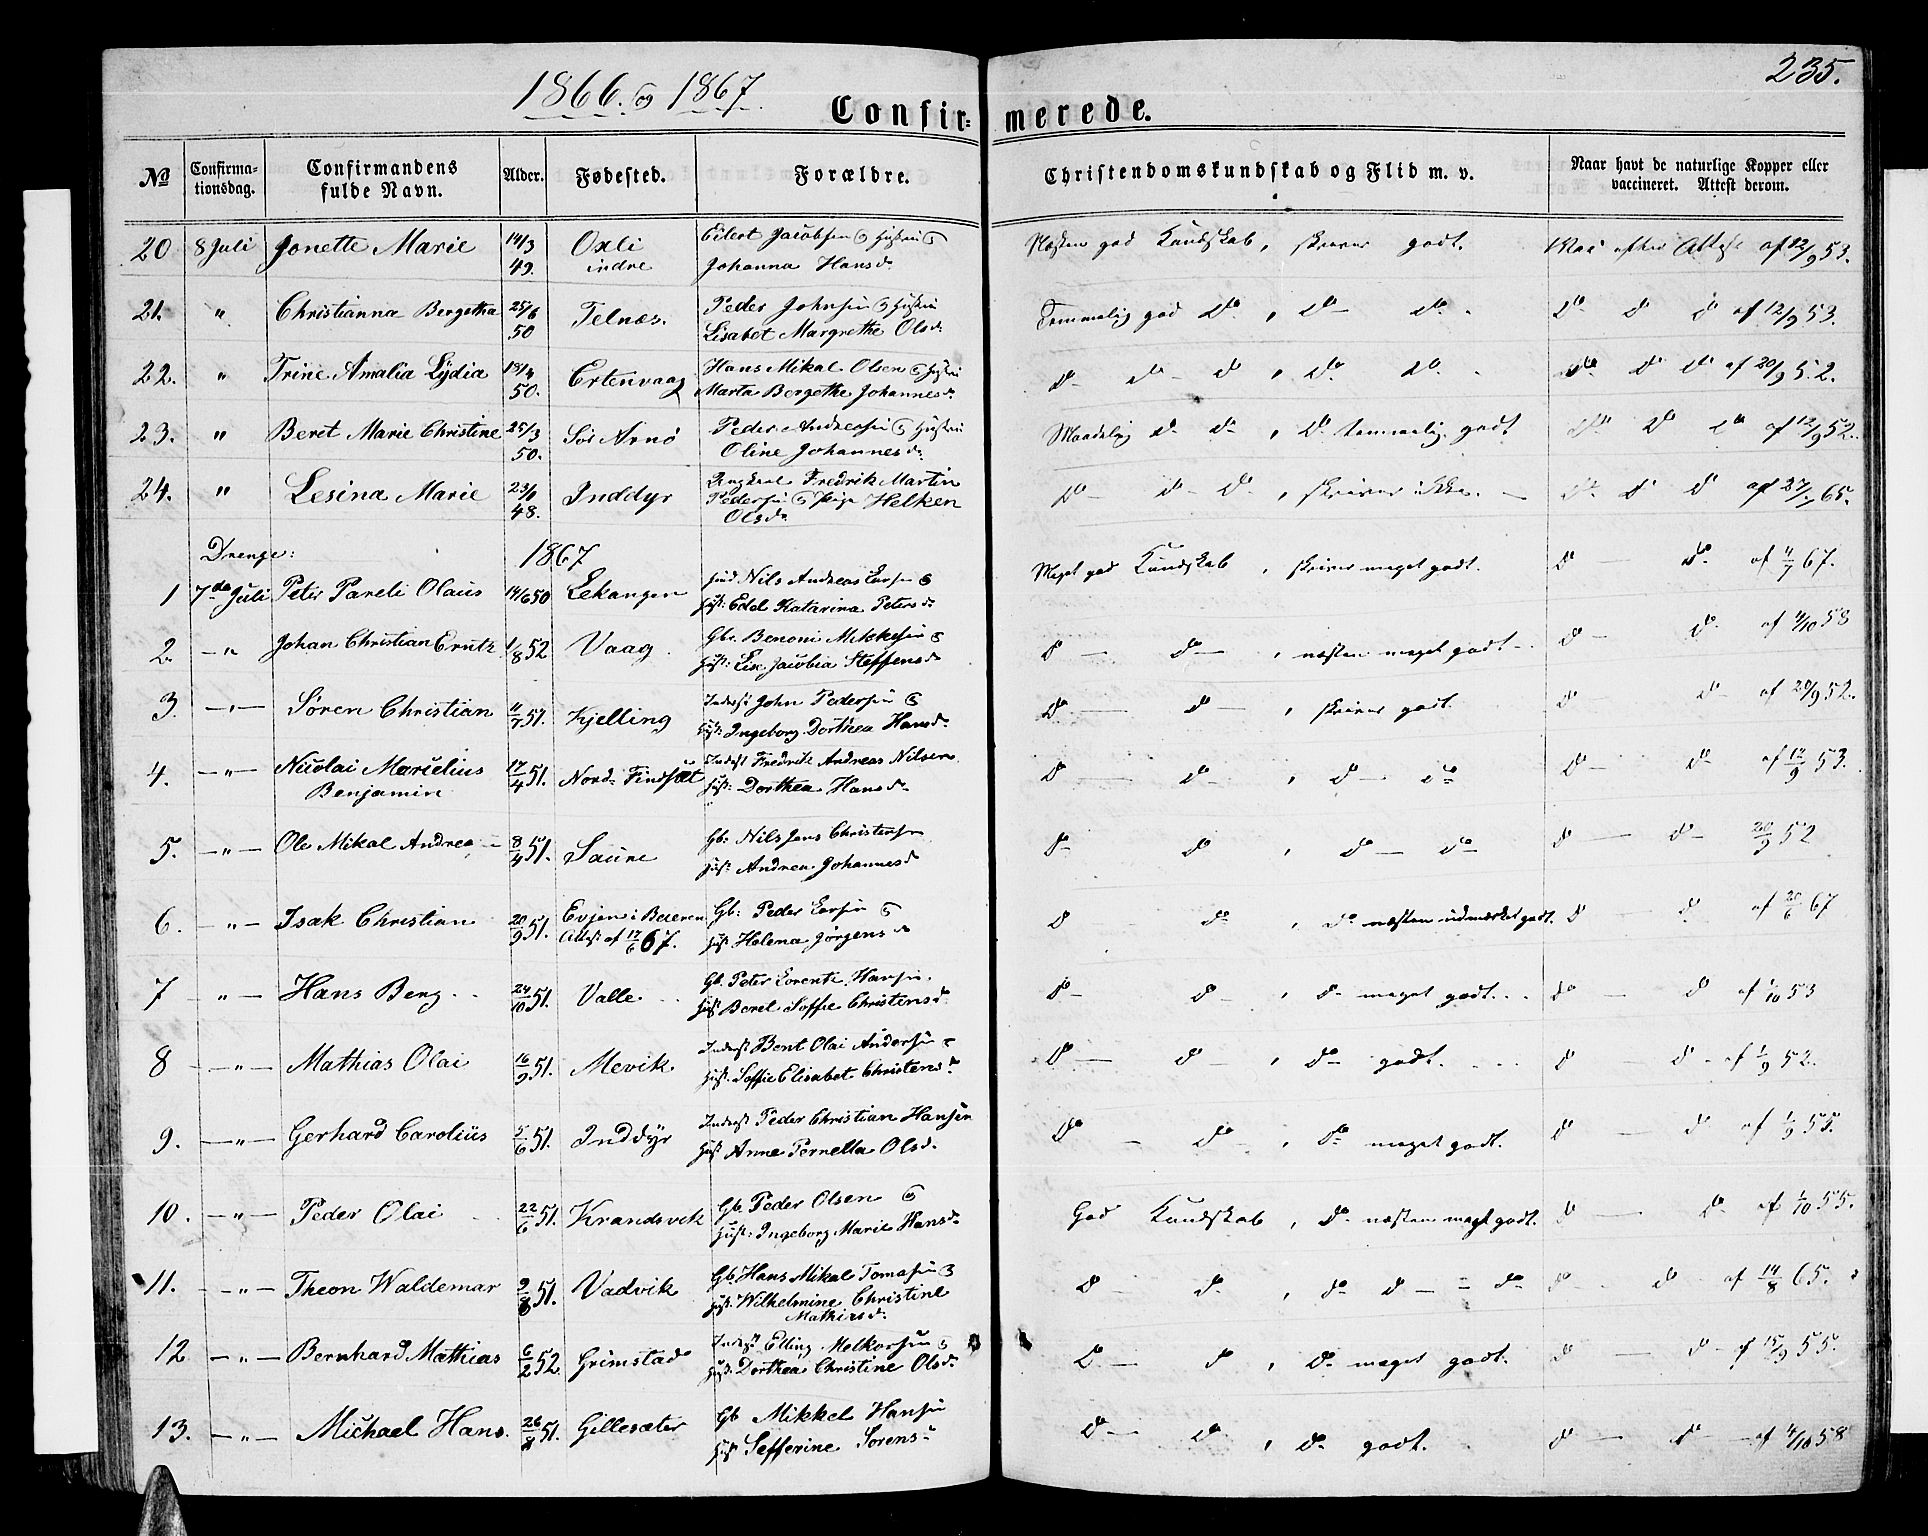 1866. og 1867.
235.
Confir-merede.
No
Confirma-tionsdag.
Confirmandens fulde Navn.
Alder.
Fødested.
Forældre.
Christendomskundskab og Flid m. v.
Naar havt de naturlige Kopper eller vaccineret. Attest derom.
20 8 Juli Jonette Marie 14/3 49. Oxli indre Eilert Jacobsen og Hustru Johanna Hansd. Næsten god Kundskab, skriver godt. Vac. efter Attest af 12/9 53.
21. " Christianna Bergetha 25/6 50 Telnæs. Peder Johnsen og Hustru Lisabet Margrethe Olsd. Temmelig god Do, Do Do. Do Do Do af 12/9 53.
22. " Trine Amalia Lydia 50. Ertenvaag Hans Mikal Olsen og Hustru Marta Bergethe Johannesd. Do Do Do, Do Do. Do Do Do af 20/9 52.
23. " Beret Marie Christine 25/3 50. Sør Arnø Peder Andersen og Hustru Oline Johannesd. Maadelig Do Do, Do temmelig godt Do Do Do af 12/9 52.
24. " Lesina Marie 48. Inddyr Ungkarl Fredrik Martin Pedersen og Pige Helken Olsd. Do Do Do, skriver ikke. Do Do Do af 65.
Drenge: 1867
1 7de Juli Peter Pareli Olaus 14/6 50 Lekangen Nils Andreas Larsen og Hust: Edel Katarina Petersd. Meget god Kundskab, skriver meget godt. Do Do af 4/7 67.
2. " Johan Christian Erntz 1/8 52 Vaag. Gbr. Benoni Mikkelsen og Hust: Lise Jacobia Steffensd. Do Do, næsten meget godt. Do Do af 4/10 58
3. " Søren Christian 11/7 51. Kjelling Inderst John Pedersen og Hust: Ingeborg Dorthea Hansd. Do Do, skriver godt. Do Do af 20/9 52.
4. " Nicolai Marelius Benjamin 17/4 51. Nord Findsæt Inderst Fredrik Andreas Nilsen Hust: Dorthea Hansd. Do Do, Do Do Do Do af 12/9 53.
5. " Ole Mikal Andrea 8/4 51. Saure Gb: Nils Jens Christensen Hust: Andrea Johannesd. Do Do, Do Do Do Do 20/9 52
6. " Isak Christian 20/9 51. Evjen i Beieren Attest af 12/6 67. Gb: Peder Larsen og Hust: Helena Jørgensd. Do Do, Do næsten udmærket godt. Do Do af 20/6 67
7 " Hans Berg 24/10 51. Valle Gb. Peter Lorentz Hansen. Hust: Beret Soffie Christensd. Do Do, Do meget godt. Do Do af 1/10 53
8 " Mathias Olai 16/9 51. Mevik Inderst Bent Olai Andersen og Hust: Soffie Elisabet Christensd. Do Do, Do godt. Do Do af 1/9 52.
9. " Gerhard Carolius 5/6 51. Inddyr Inderst Peder Christian Hansen Hust Anne Pernella Olsd. Do Do, Do meget godt. Do Do af 1/9 55.
10. " Peder Olai 22/6 51. Krandsvik Gb Peder Olsen og Hust: Ingeborg Marie Hansd. God Kundskab, Do næsten meget godt. Do Do af 1/10 55.
11. " Theon Waldemar 9/8 51. Vadvik Gb. Hans Mikal Tomasen og Hust: Wilhelmine Christine Mathisd. Do Do, Do Do Do Do Do af 14/8 65.
12 " Bernhard Mathias 6/2 52. Grimstad Inderst Elling Melkersen og Hust: Dorthea Christine Olsd. Do Do, Do meget godt. Do Do af 15/9 55.
13. " Michael Hans. 26/8 51. Gillesæter Gb Mikkel Hansen Hust Sefferine Sørensd. Do Do, Do godt. Do Do af 4/10 58